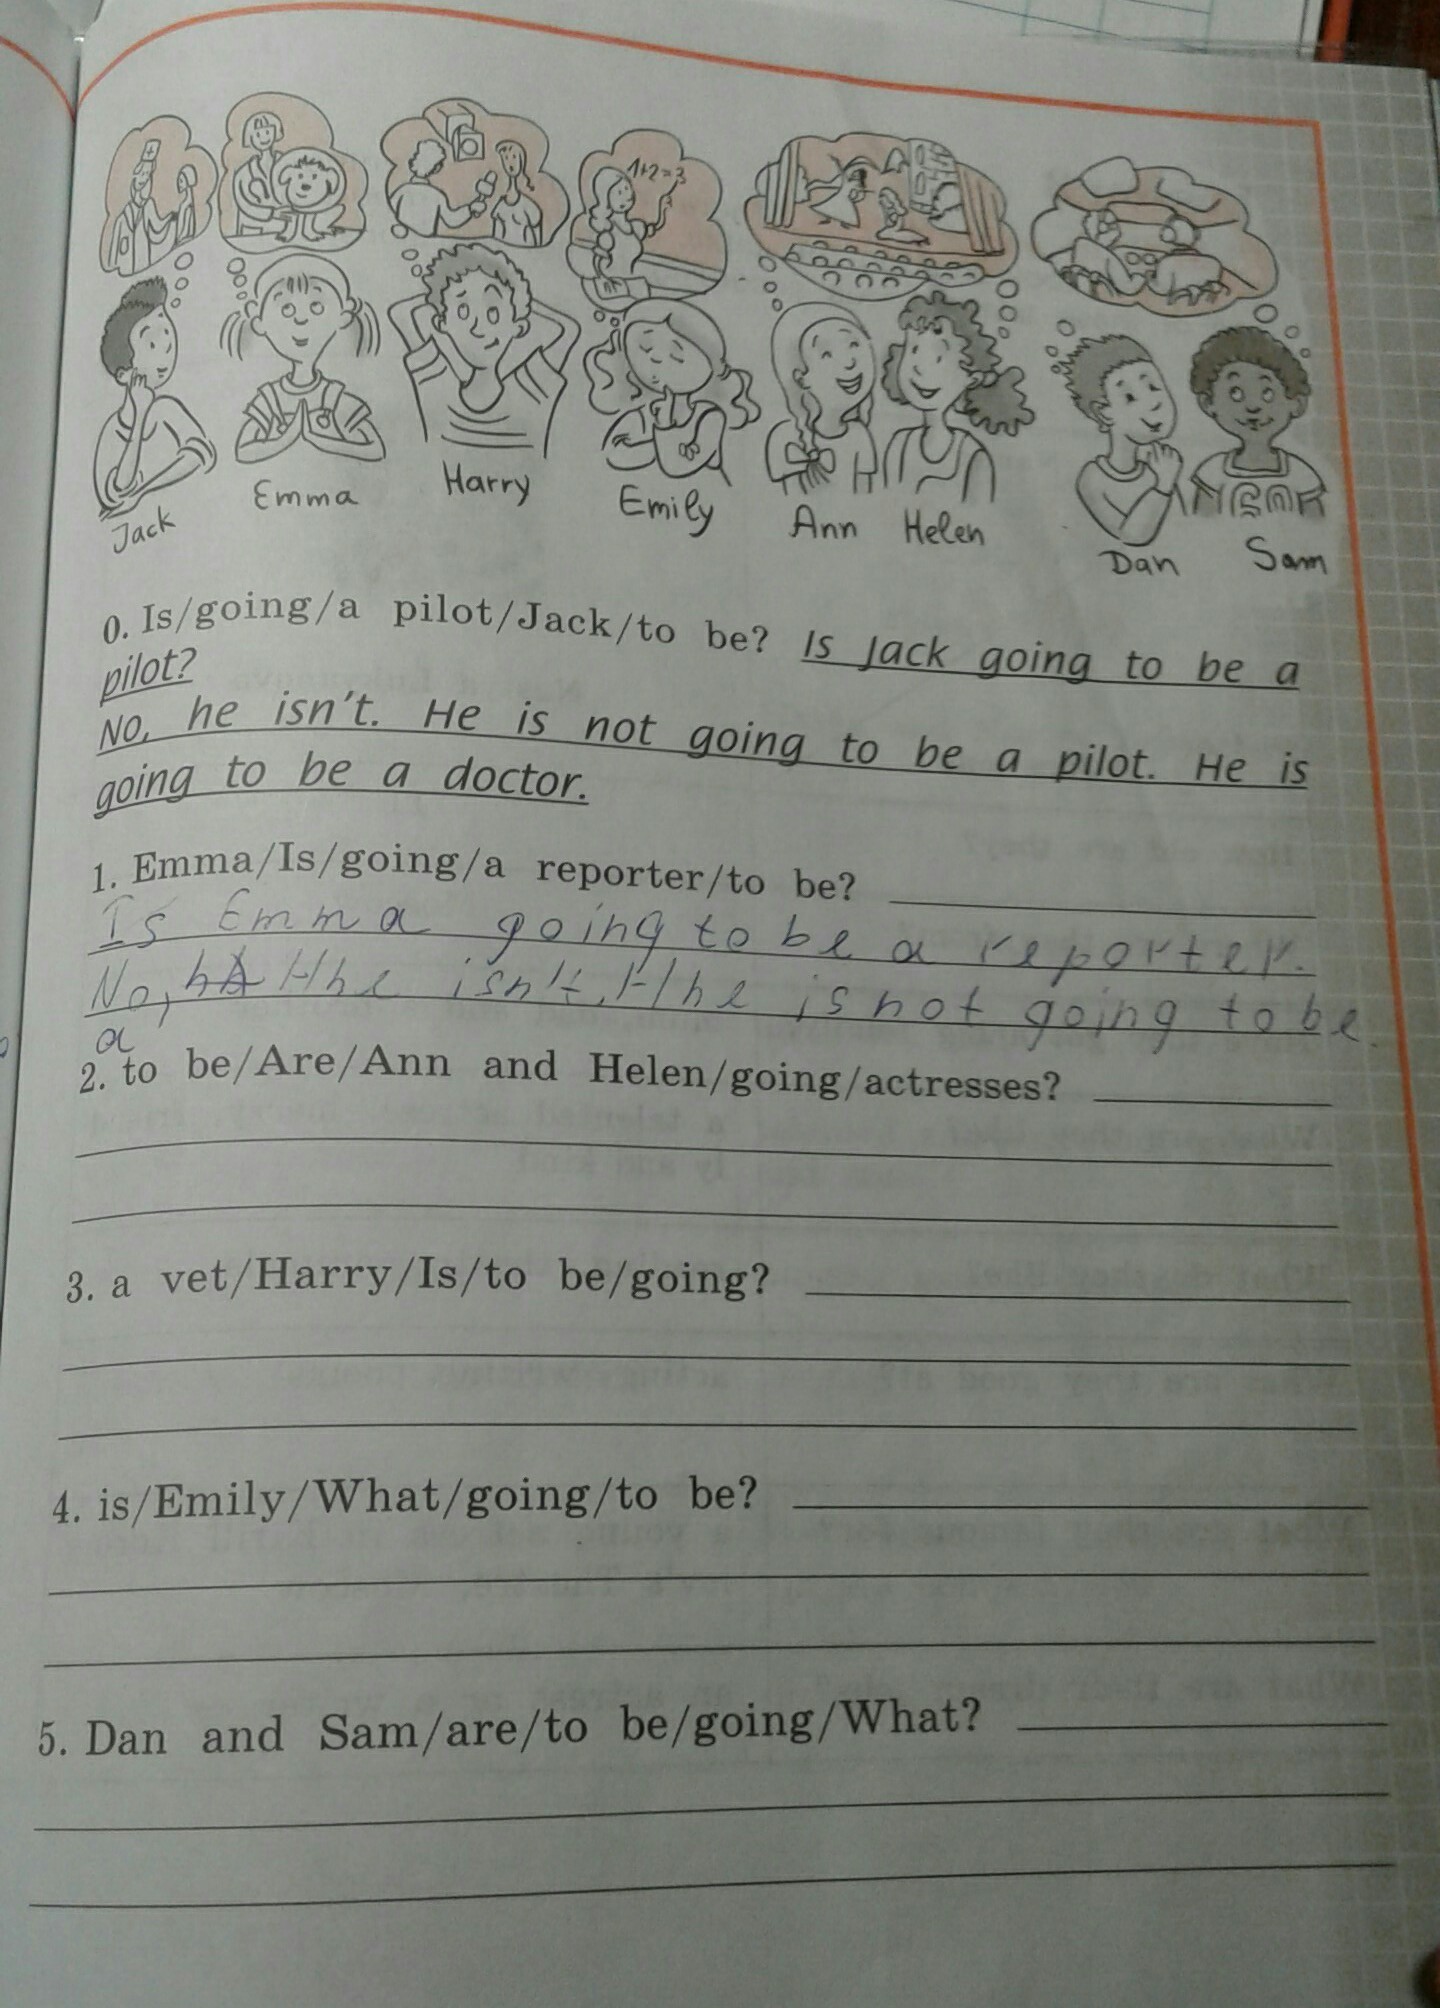 1+2=3
Jack
Emma
Harry
Emily
Ann
Helen
Dan
Sam
0. Is/going/a pilot/Jack/to be? Is Jack going to be a
pilot?
No, he isn't. He is not going to be a pilot. He is
going to be a doctor.
1. Emma/Is/going/a reporter/to be?
Is Emma going to be a reporter.
No, Hhe isn't. Hhe is not going to be
a
2. to be/Are/Ann and Helen/going/actresses?
3. a vet/Harry/Is/to be/going?
4. is/Emily/What/going/to be?
5. Dan and Sam/are/to be/going/What?